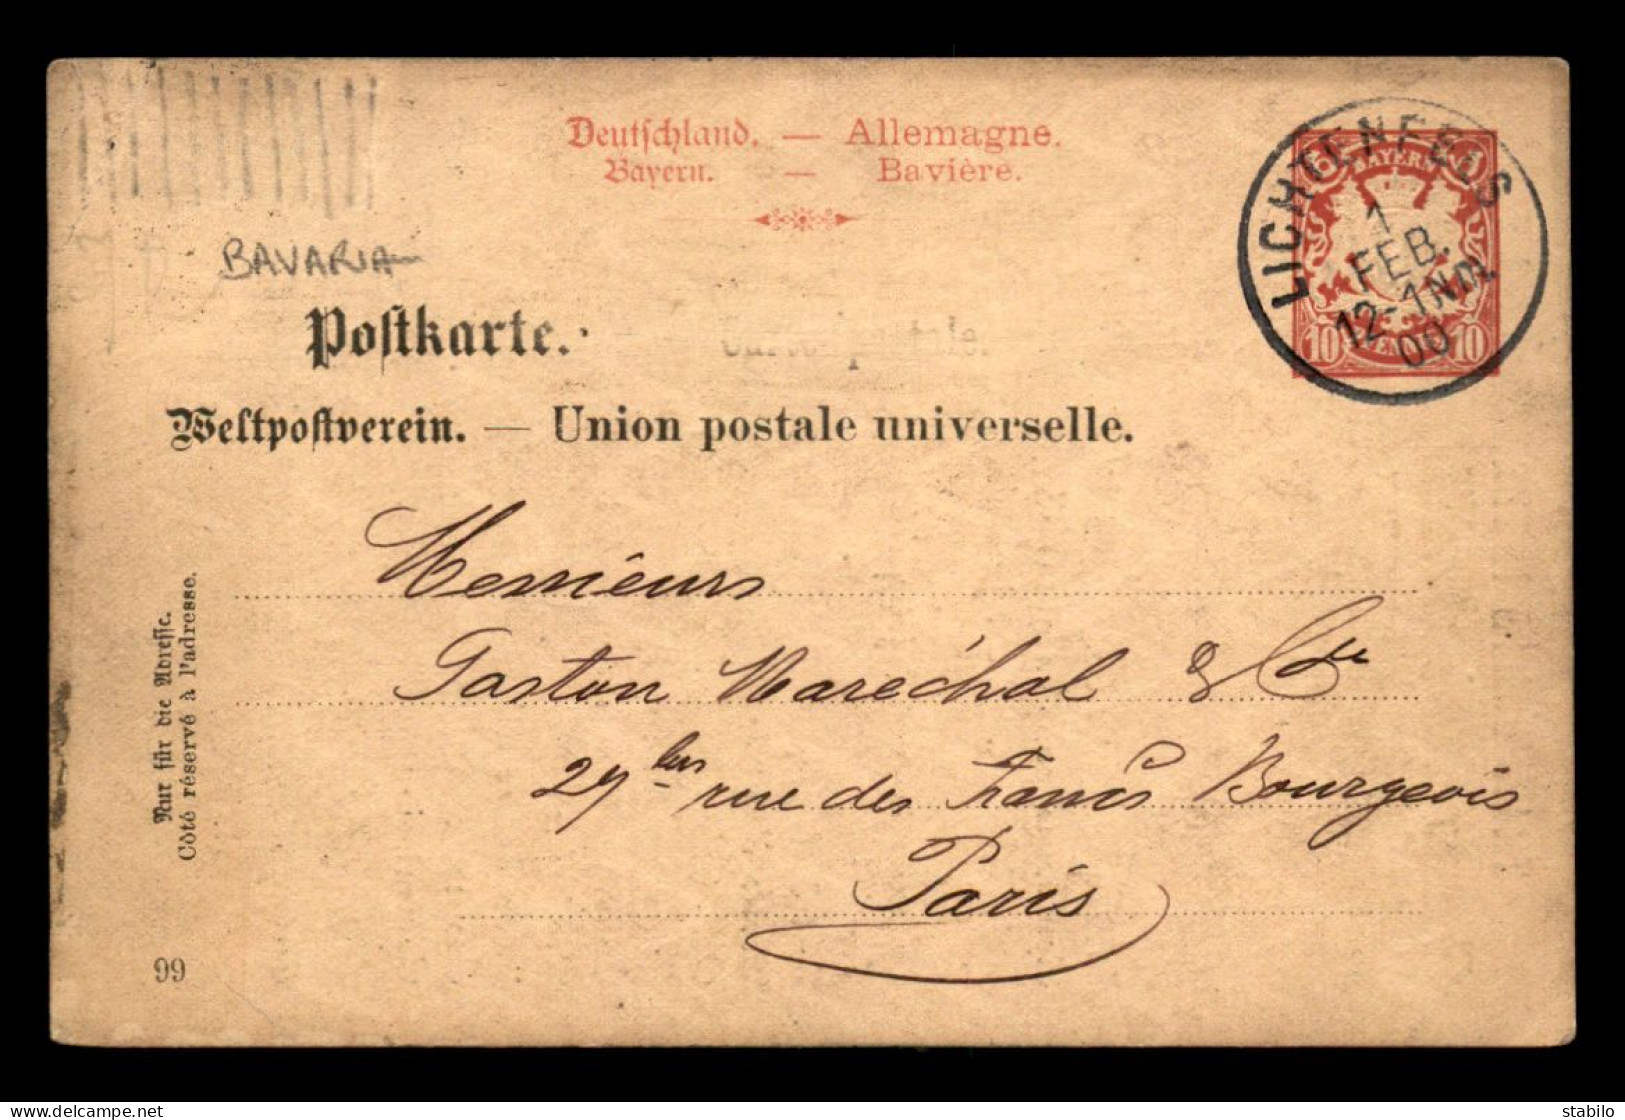 Deutschland. — Allemagne.
Bayern. — Bavière.
BAVARIA
Postkarte. Carte postale.
Weltpostverein. — Union postale universelle.
BAYERN
10 PFENNIG 10
LICHTENFELS
1
FEB.
12-1NM
00
Messieurs
Gaston Maréchal & Cie
29 bis rue des Francs Bourgeois
Paris
Nur für die Adresse.
Côté réservé à l'adresse.
99
delcampe.net
stabilo